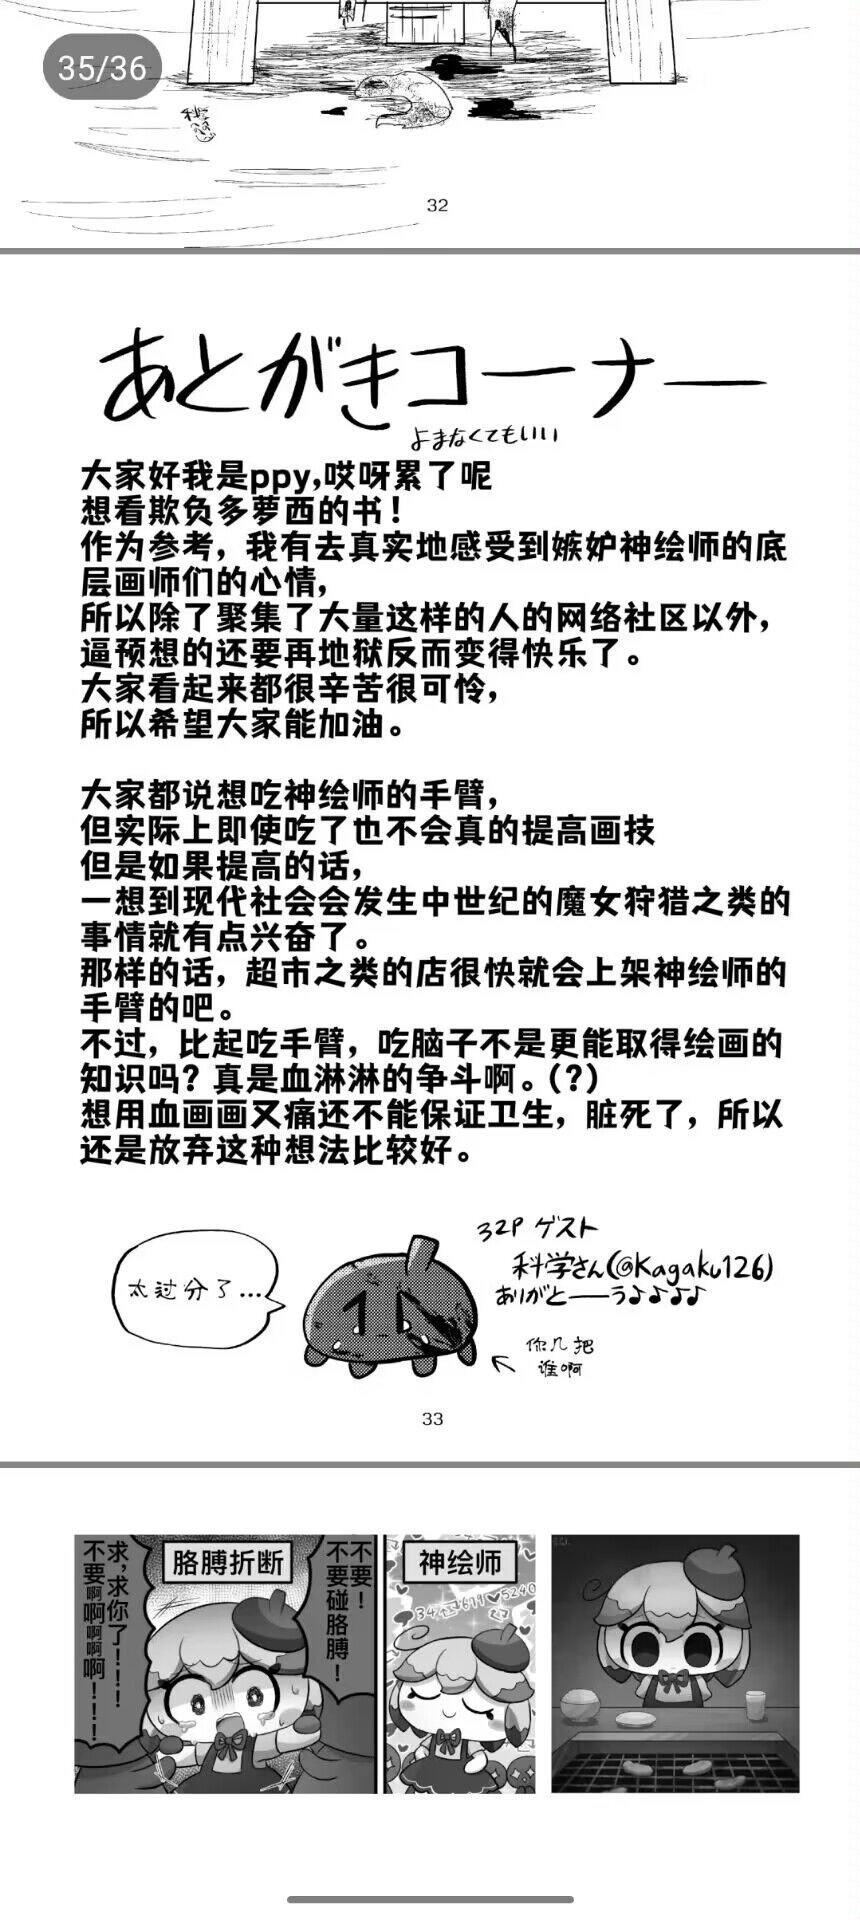 35/36
32
あとがきコーナー
よまなくてもいい
大家好我是ppy,哎呀累了呢
想看欺负多萝西的书！
作为参考，我有去真实地感受到嫉妒神绘师的底
层画师们的心情，
所以除了聚集了大量这样的人的网络社区以外，
逼预想的还要再地狱反而变得快乐了。
大家看起来都很辛苦很可怜，
所以希望大家能加油。
大家都说想吃神绘师的手臂，
但实际上即使吃了也不会真的提高画技
但是如果提高的话，
一想到现代社会会发生中世纪的魔女狩猎之类的
事情就有点兴奋了。
那样的话，超市之类的店很快就会上架神绘师的
手臂的吧。
不过，比起吃手臂，吃脑子不是更能取得绘画的
知识吗？真是血淋淋的争斗啊。(?)
想用血画画又痛还不能保证卫生，脏死了，所以
还是放弃这种想法比较好。
太过分了...
32P ゲスト
科学さん(@Kagaku126)
ありがとーう♪♪♪♪
你几把
谁啊
33
不要！
不要碰胳膊！
胳膊折断
求，求你了！！！
不要啊啊啊啊！！！
神绘师